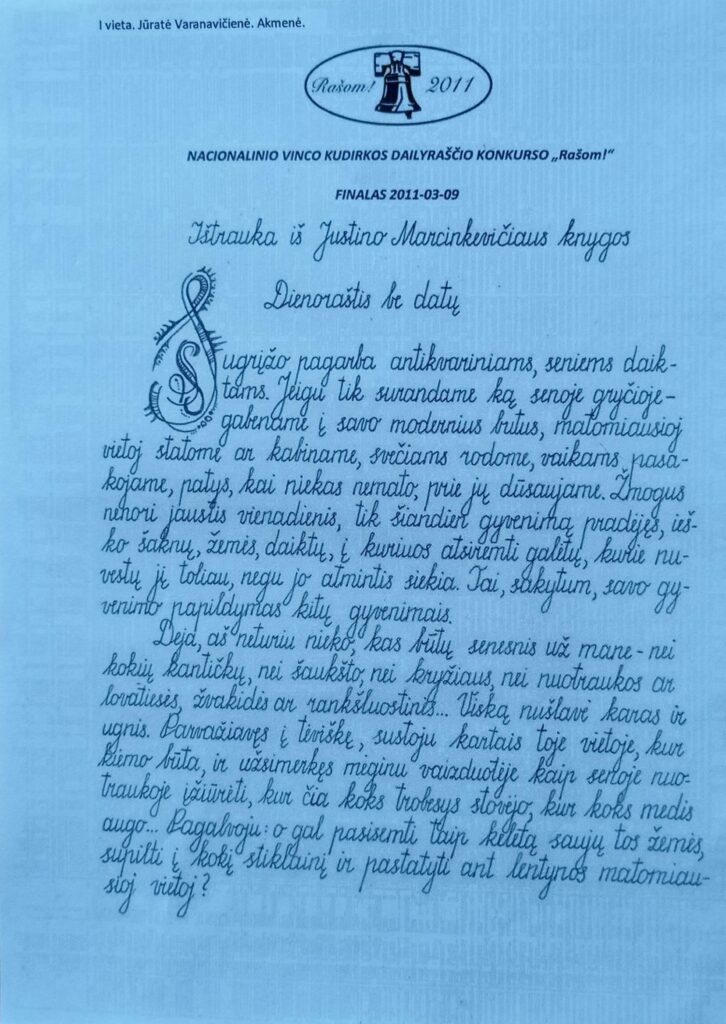 I vieta. Jūratė Varanavičienė. Akmenė.
Rašom! 2011
NACIONALINIO VINCO KUDIRKOS DAILYRAŠČIO KONKURSO „Rašom!“
FINALAS 2011-03-09
Ištrauka iš Justino Marcinkevičiaus knygos
Dienoraštis be datų
Sugrįžo pagarba antikvariniams, seniems daik-
tams. Jeigu tik surandame ką senoje gryčioje-
gabename į savo modernius butus, matomiausioj
vietoj statome ar kabiname, svečiams rodome, vaikams pasa-
kojame, patys, kai niekas nemato, prie jų dūsaujame. Žmogus
nenori jaustis vienadienis, tik šiandien gyvenimą pradėjęs, ieš-
ko šaknų, žemės, daiktų, į kuriuos atsiremti galėtų, kurie nu-
vestų jį toliau, negu jo atmintis siekia. Tai, sakytum, savo gy-
venimo papildymas kitų gyvenimais.
Deja, aš neturiu nieko, kas būtų senesnis už mane - nei
kokių kantičkų, nei šaukšto, nei kryžiaus, nei nuotraukos ar
lovatiesės, žvakidės ar rankšluostinės... Viską nušlavė karas ir
ugnis. Parvažiavęs į tėviškę, sustoju kartais toje vietoje, kur
kiemo būta, ir užsimerkęs mėginu vaizduotėje kaip senoje nuo-
traukoje įžiūrėti, kur čia koks trobesys stovėjo, kur koks medis
augo... Pagalvoju: o gal pasisemti taip keletą saujų tos žemės,
supilti į kokį stiklainį ir pastatyti ant lentynos matomiau-
sioj vietoj?